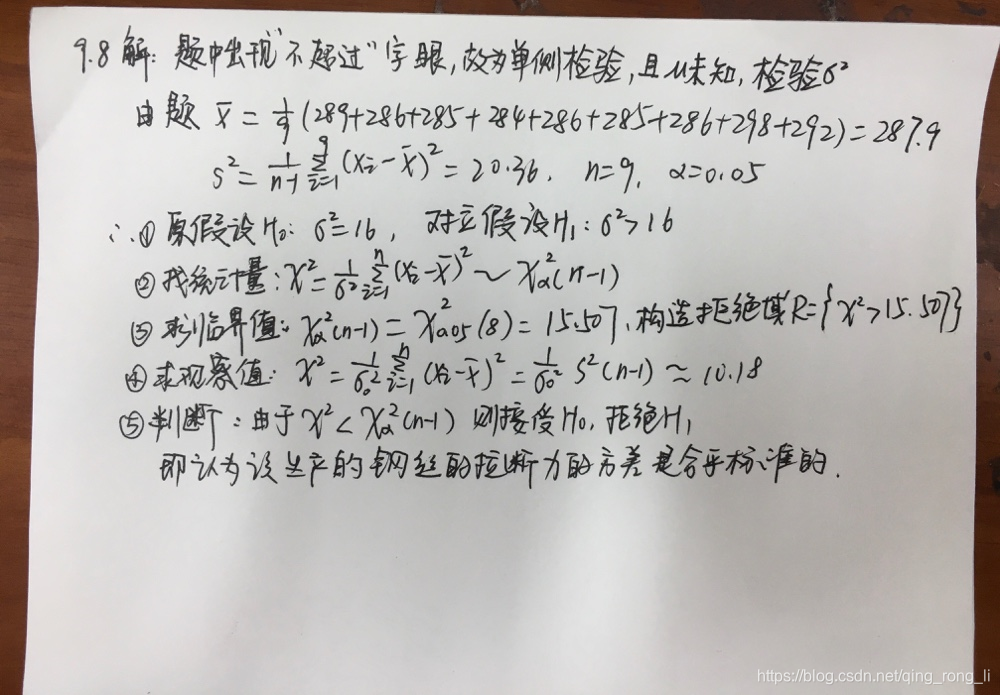 9.8 解: 题中出现"不超过"字眼,故为单侧检验,且μ未知,检验σ²
由题 x̄ = 1/9 (289+286+285+284+286+285+286+298+292) = 287.9
S² = 1/(n-1) Σ_{i=1}^{9} (xi - x̄)² = 20.36, n=9, α=0.05
∴ ① 原假设H₀: σ²=16, 对立假设H₁: σ²>16
② 找统计量: χ² = 1/σ² Σ_{i=1}^{n} (xi - x̄)² ~ χ²α(n-1)
③ 求临界值: χ²α(n-1) = χ²0.05(8) = 15.507, 构造拒绝域R={χ²>15.507}
④ 求观察值: χ² = 1/σ₀² Σ_{i=1}^{n} (xi - x̄)² = 1/σ₀² S²(n-1) ≈ 10.18
⑤ 判断: 由于 χ² < χ²α(n-1) 则接受H₀, 拒绝H₁
即认为该生产的钢丝的拉断力的方差是合乎标准的.
https://blog.csdn.net/qing_rong_li